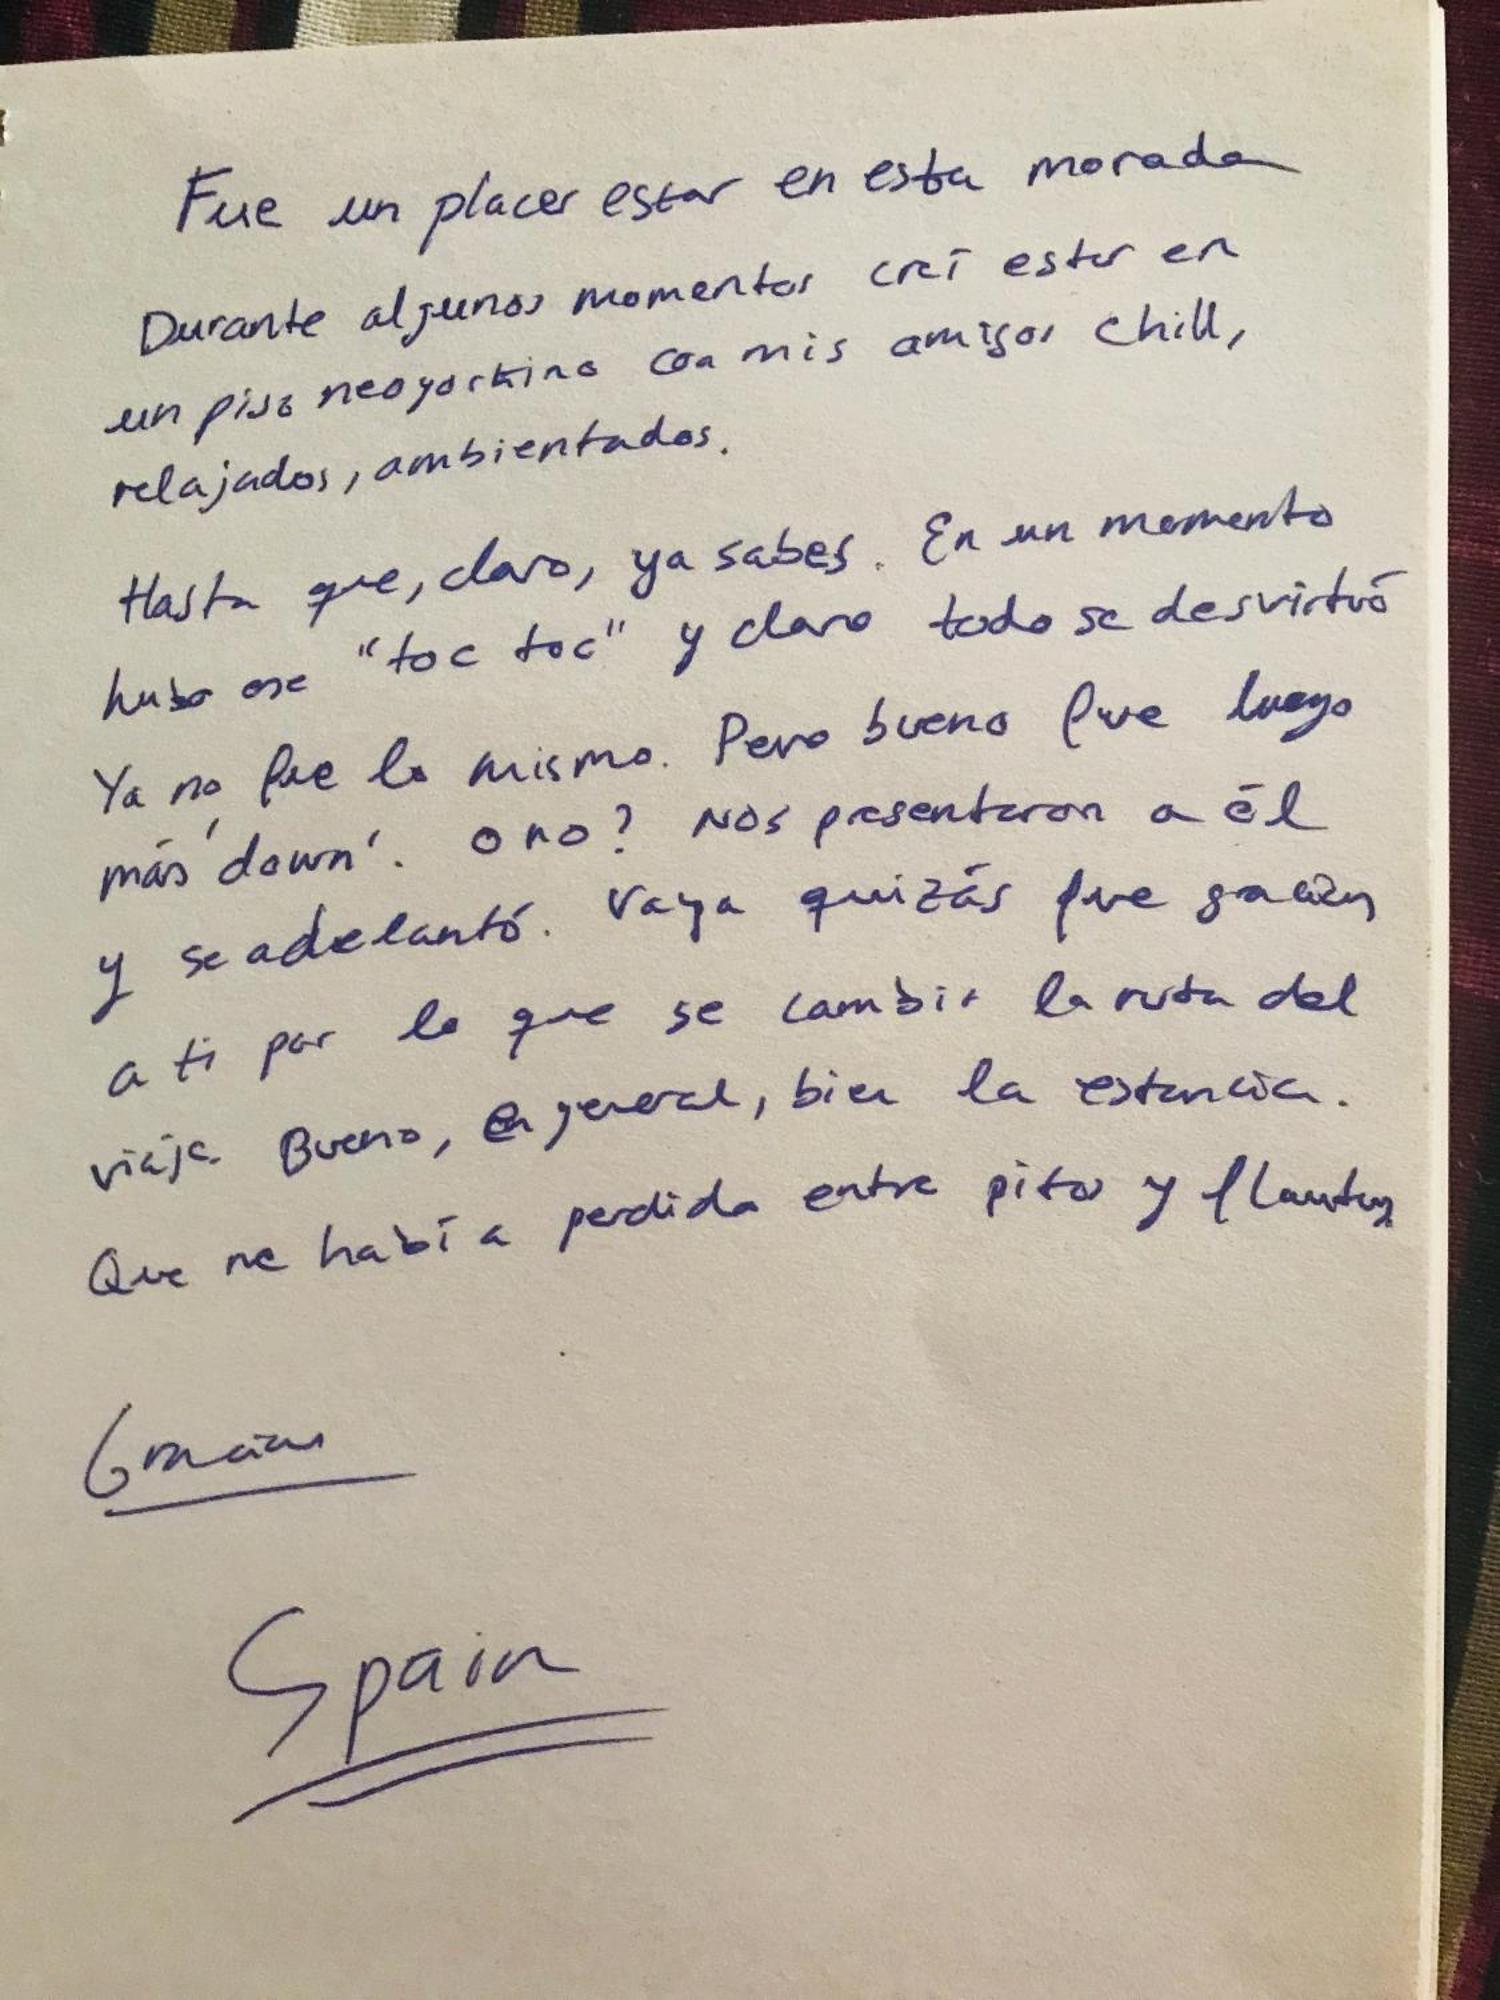 Fue un placer estar en esta morada
Durante algunos momentos creí estar en
un piso neoyorkino con mis amigos chill,
relajados, ambientados.
Hasta que, claro, ya sabes. En un momento
hubo ese "toc toc" y claro todo se desvirtuó
Ya no fue lo mismo. Pero bueno fue luego
más 'down'. o no? Nos presentaron a él
y se adelantó. Vaya quizás fue gracias
a ti por lo que se cambió la ruta del
viaje. Bueno, en general, bien la estancia.
Que me había perdido entre pitos y flautas
Gracias
Spain